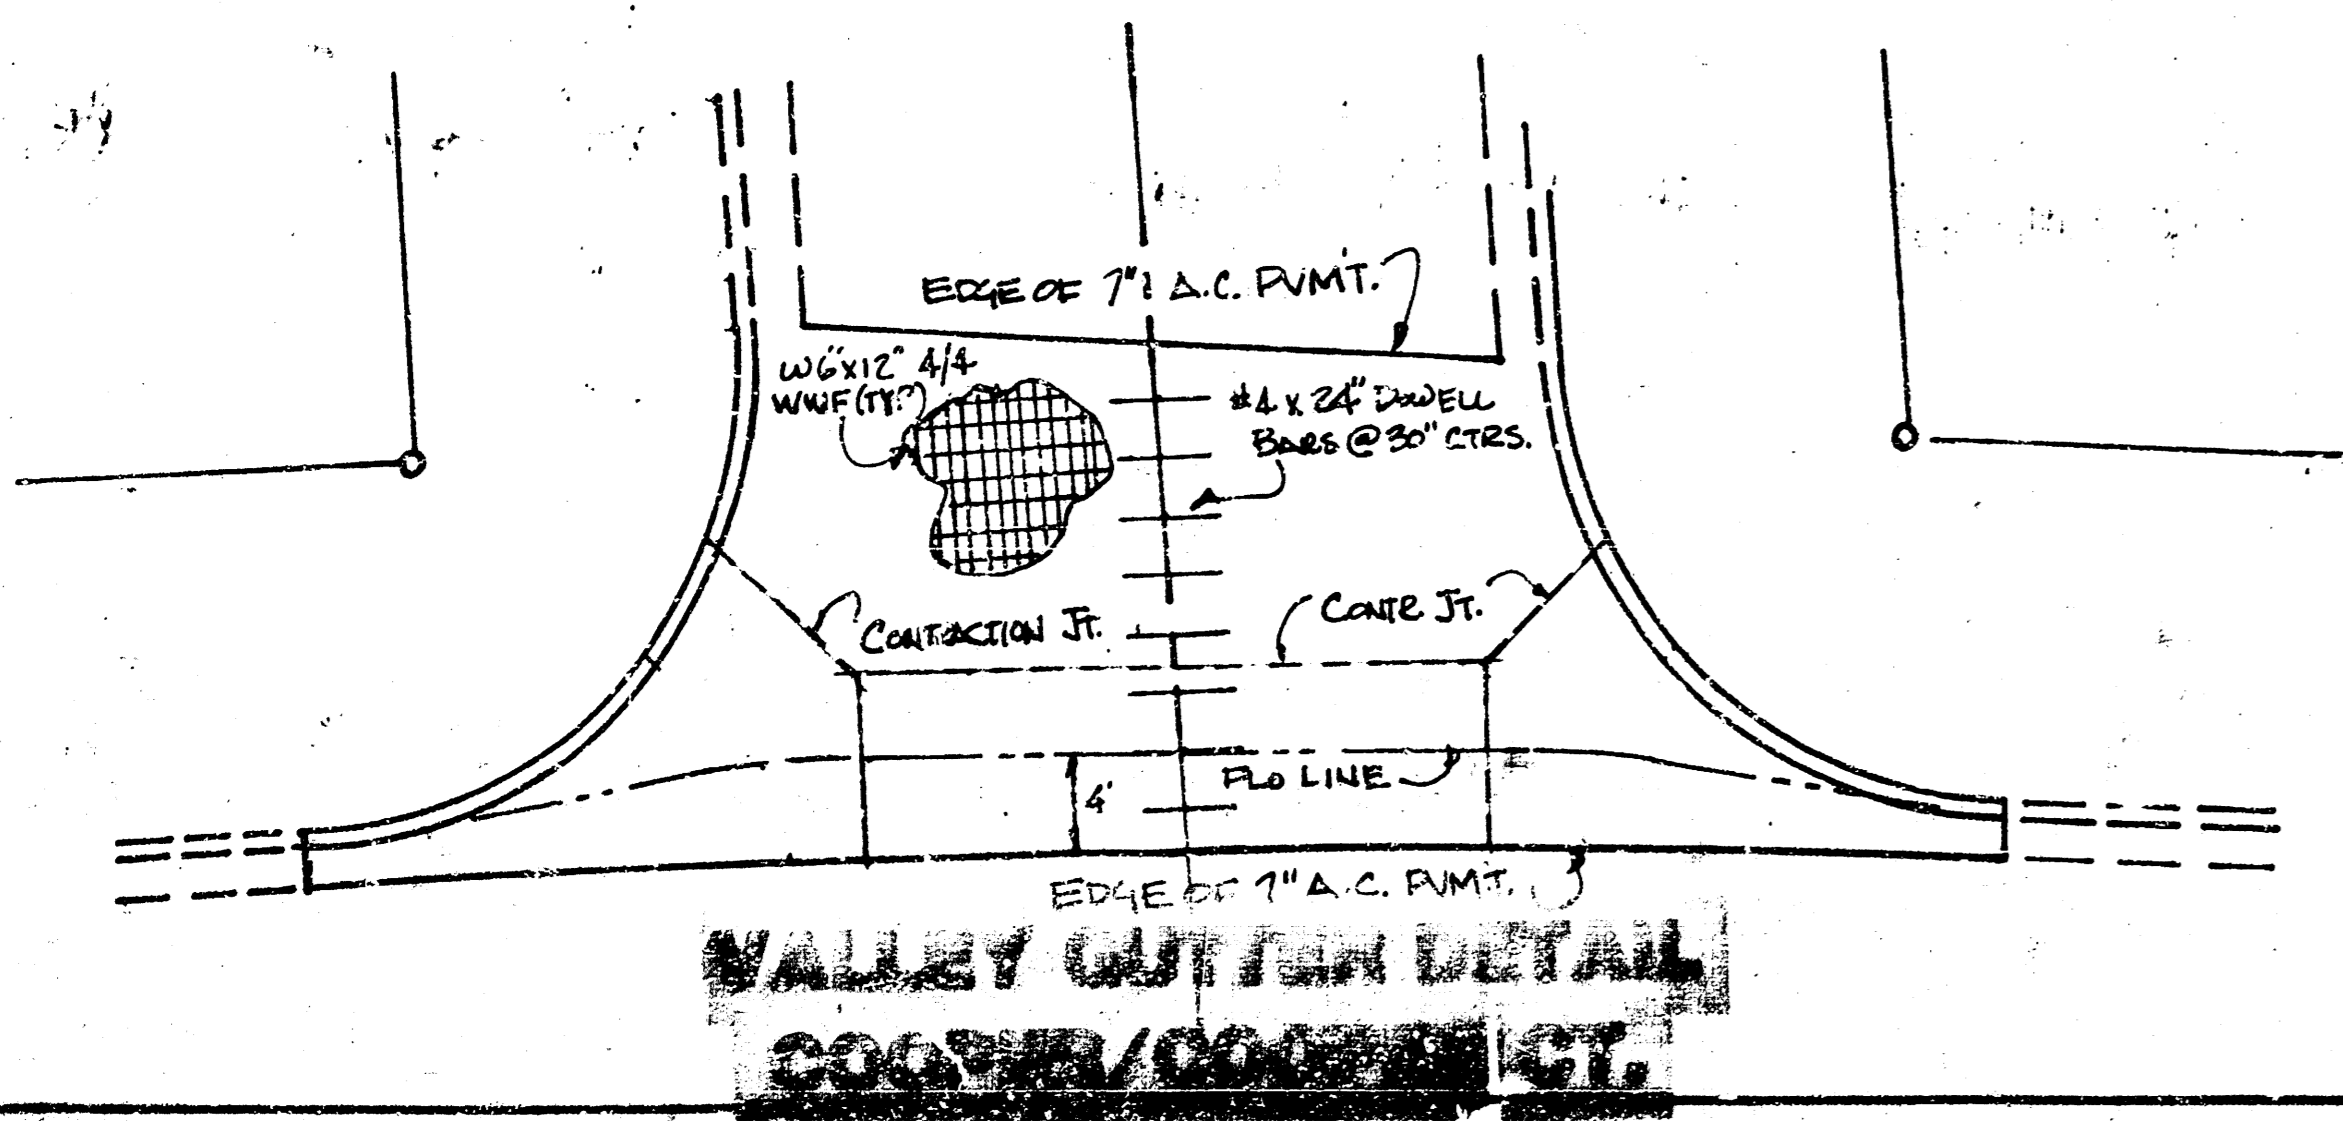 EDGE OF 7" A.C. PVM'T.
W6"x12" 4/4
WWF (TYP)
#4 x 24" DOWELL
BARS @ 30" CTRS.
CONTRACTION JT.
CONTR. JT.
FLO LINE
4'
EDGE OF 7" A.C. PVMT.
VALLEY GUTTER DETAIL
CT.